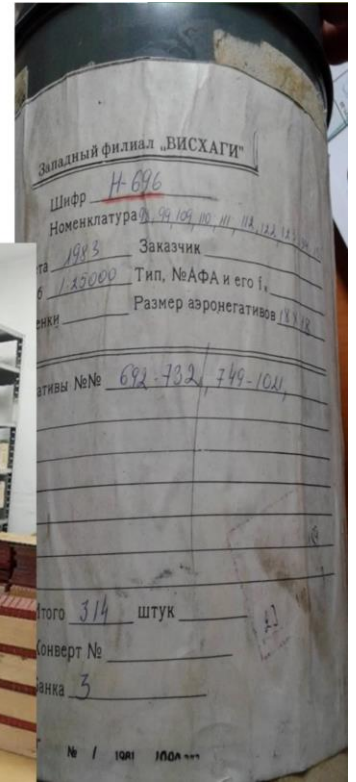 Западный филиал „ВИСХАГИ"
Шифр Н-696
Номенклатура 99, 109, 110, 111, 112, 122,
та 1983 Заказчик
б 1:25000 Тип, №АФА и его f.
енки Размер аэронегативов 18х18
ативы №№ 692-732, 749-1021,
Итого 314 штук
Конверт №
Банка 3
№ / 1981 1000